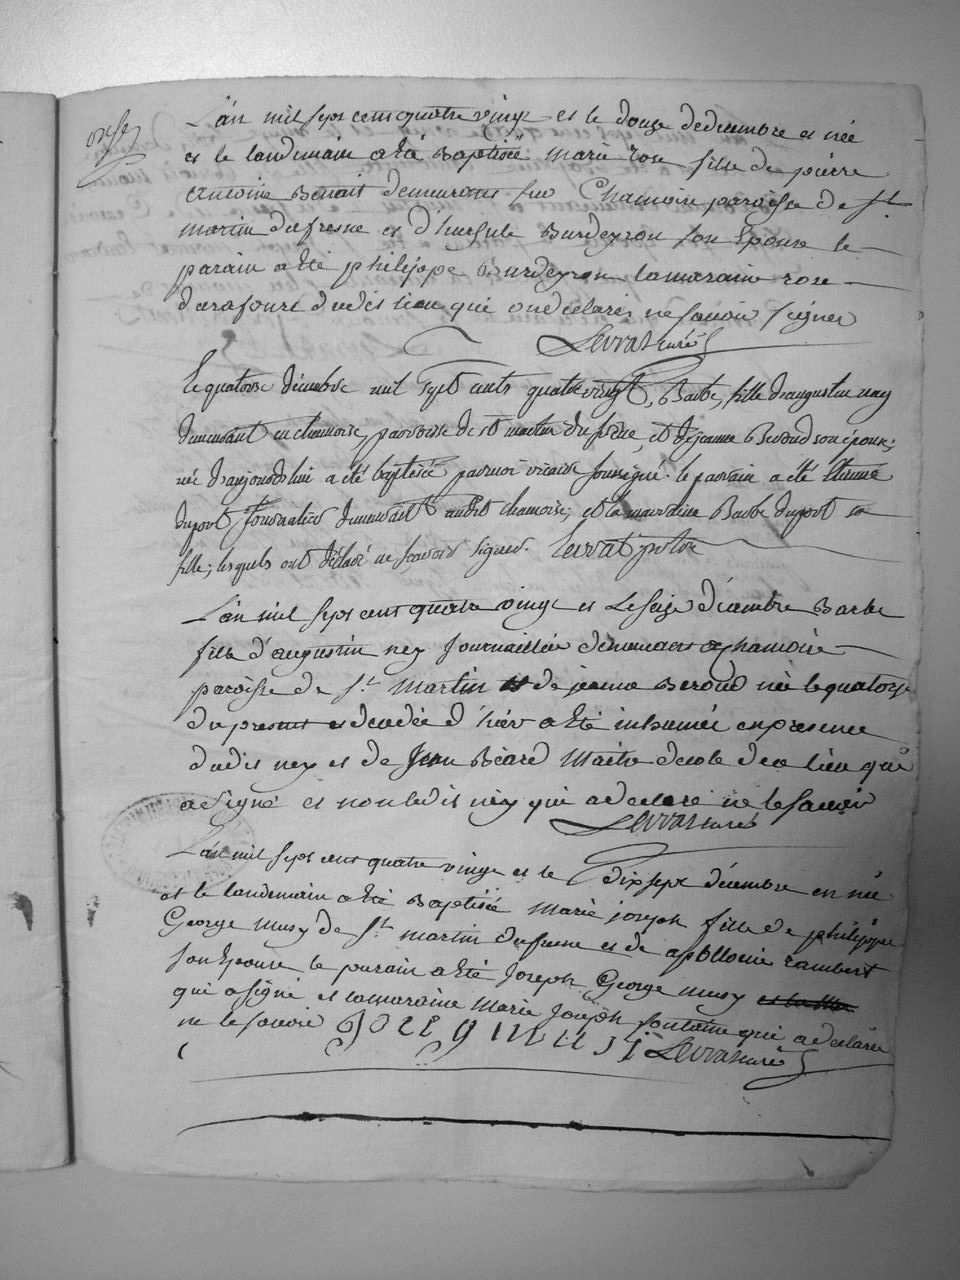 L'an mil sept cent quatre vingt et le douze de décembre et née
et le landemain a été Baptisée marie rose fille de pierre
antoine Benoit demeurant sur Chamoire paroisse de St
martin du fresne et d'hursule Burdeyron son Epouse le
parain a été philippe Burdeyron la maraine rose
darafourt dudit lieu qui ont declarés ne savoir signer
Levrat curé
Le quatorse décembre mil sept cents quatre vingt, Barbe, fille d'augustin ney
demeurant en chamoise, paroisse de st martin du frêne, et de jeanne Beroud son épouse;
née d'aujourdhui a été baptisée par moi vicaire soussigné. le parrain a été Etienne
dupont journalier demeurant audit chamoise; et la marraine Barbe dupont sa
fille; lesquels ont déclaré ne scavoir signer. Levrat ptre
L'an mil sept cent quatre vingt et le seize décembre Barbe
fille d'augustin ney journaillier demeurant a chamoire
paroisse de St Martin de jeanne Beroud née le quatorze
du présent et decedée d'hier a été inhumée en presence
dudit ney et de jean Béard Maitre decole de ce lieu qui
a signé et non ledit ney qui a declaré ne le savoir
Levrat curé
L'an mil sept cent quatre vingt et le dix sept décembre en née
et le landemain a été Baptisée marie joseph fille de philippe
George musy de St martin dufresne et de apolloine rambert
son Epouse le parain a été joseph George musy
qui a signé et la maraine marie joseph fontaine qui a declarée
ne le savoir Joze g musi Levrat curé